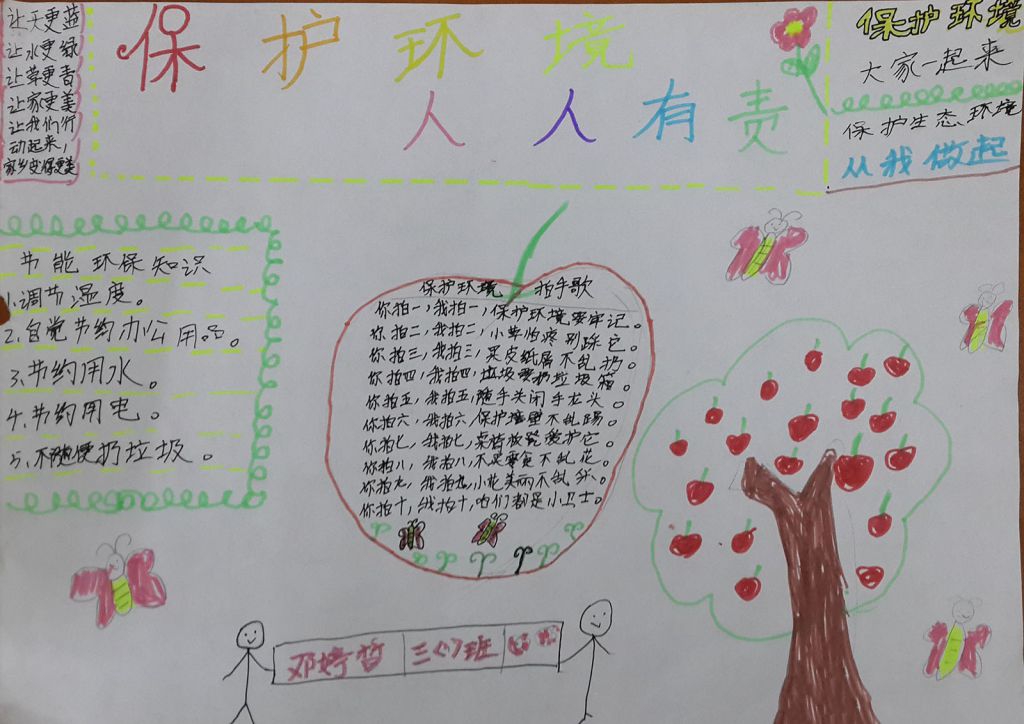 让天更蓝
让水更绿
让草更香
让家更美
让我们行
动起来，
家乡变得更美
保护环境
人人有责
保护环境
大家一起来
保护生态环境
从我做起
节能环保知识
1.调节温度。
2.自觉节约办公用品。
3.节约用水。
4.节约用电。
5.不随便扔垃圾。
保护环境 拍手歌
你拍一，我拍一，保护环境要牢记。
你拍二，我拍二，小草怕疼别踩它。
你拍三，我拍三，果皮纸屑不乱扔。
你拍四，我拍四，垃圾要扔垃圾箱。
你拍五，我拍五，随手关闭手龙头。
你拍六，我拍六，保护墙壁不乱踢。
你拍七，我拍七，桌椅板凳爱护它。
你拍八，我拍八，不买零食不乱花。
你拍九，我拍九，小花美丽不乱
你拍十，我拍十，咱们都是小卫士。
邓婷哲 三(7)班